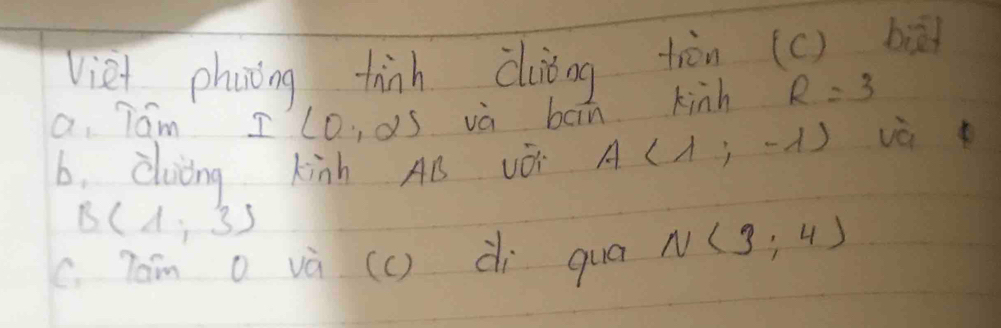 Viết phương trình đường tròn (C) biết
a, Tâm I (0; 2) và bán kính R = 3
b, đường kính AB với A (1; -1) và
B (1; 3)
c. Tâm O và (C) đi qua N (3; 4)